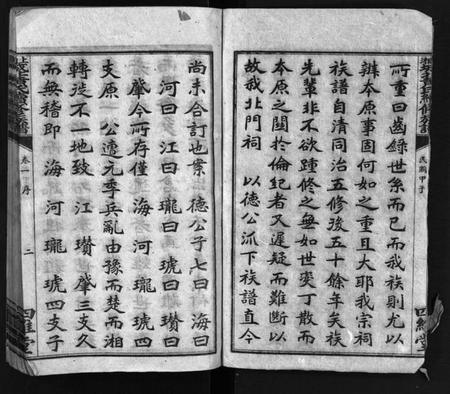 所重曰齒錄世系而已而我族則尤以
辦本原事固何如之重且大耶我宗祠
族譜自清同治五修後五十餘年矣族
先輩非不欲踵修之無如變丁散而
本原之關於倫紀者又遲疑而難斷以
故我北門祠 以德公派下族譜直今
民國甲子
四維堂
尚未合訂也案 德公子七曰 海曰
河曰 江曰 瓏曰 琥曰 瓚曰
肇今所存僅 海 河 瓏 琥四
支原 公遭元季兵亂由豫而楚而湘
轉徙不一地致 江 瓚 肇三支久
而無稽即 海 河 瓏 琥四支子
卷一 序
二
四維堂